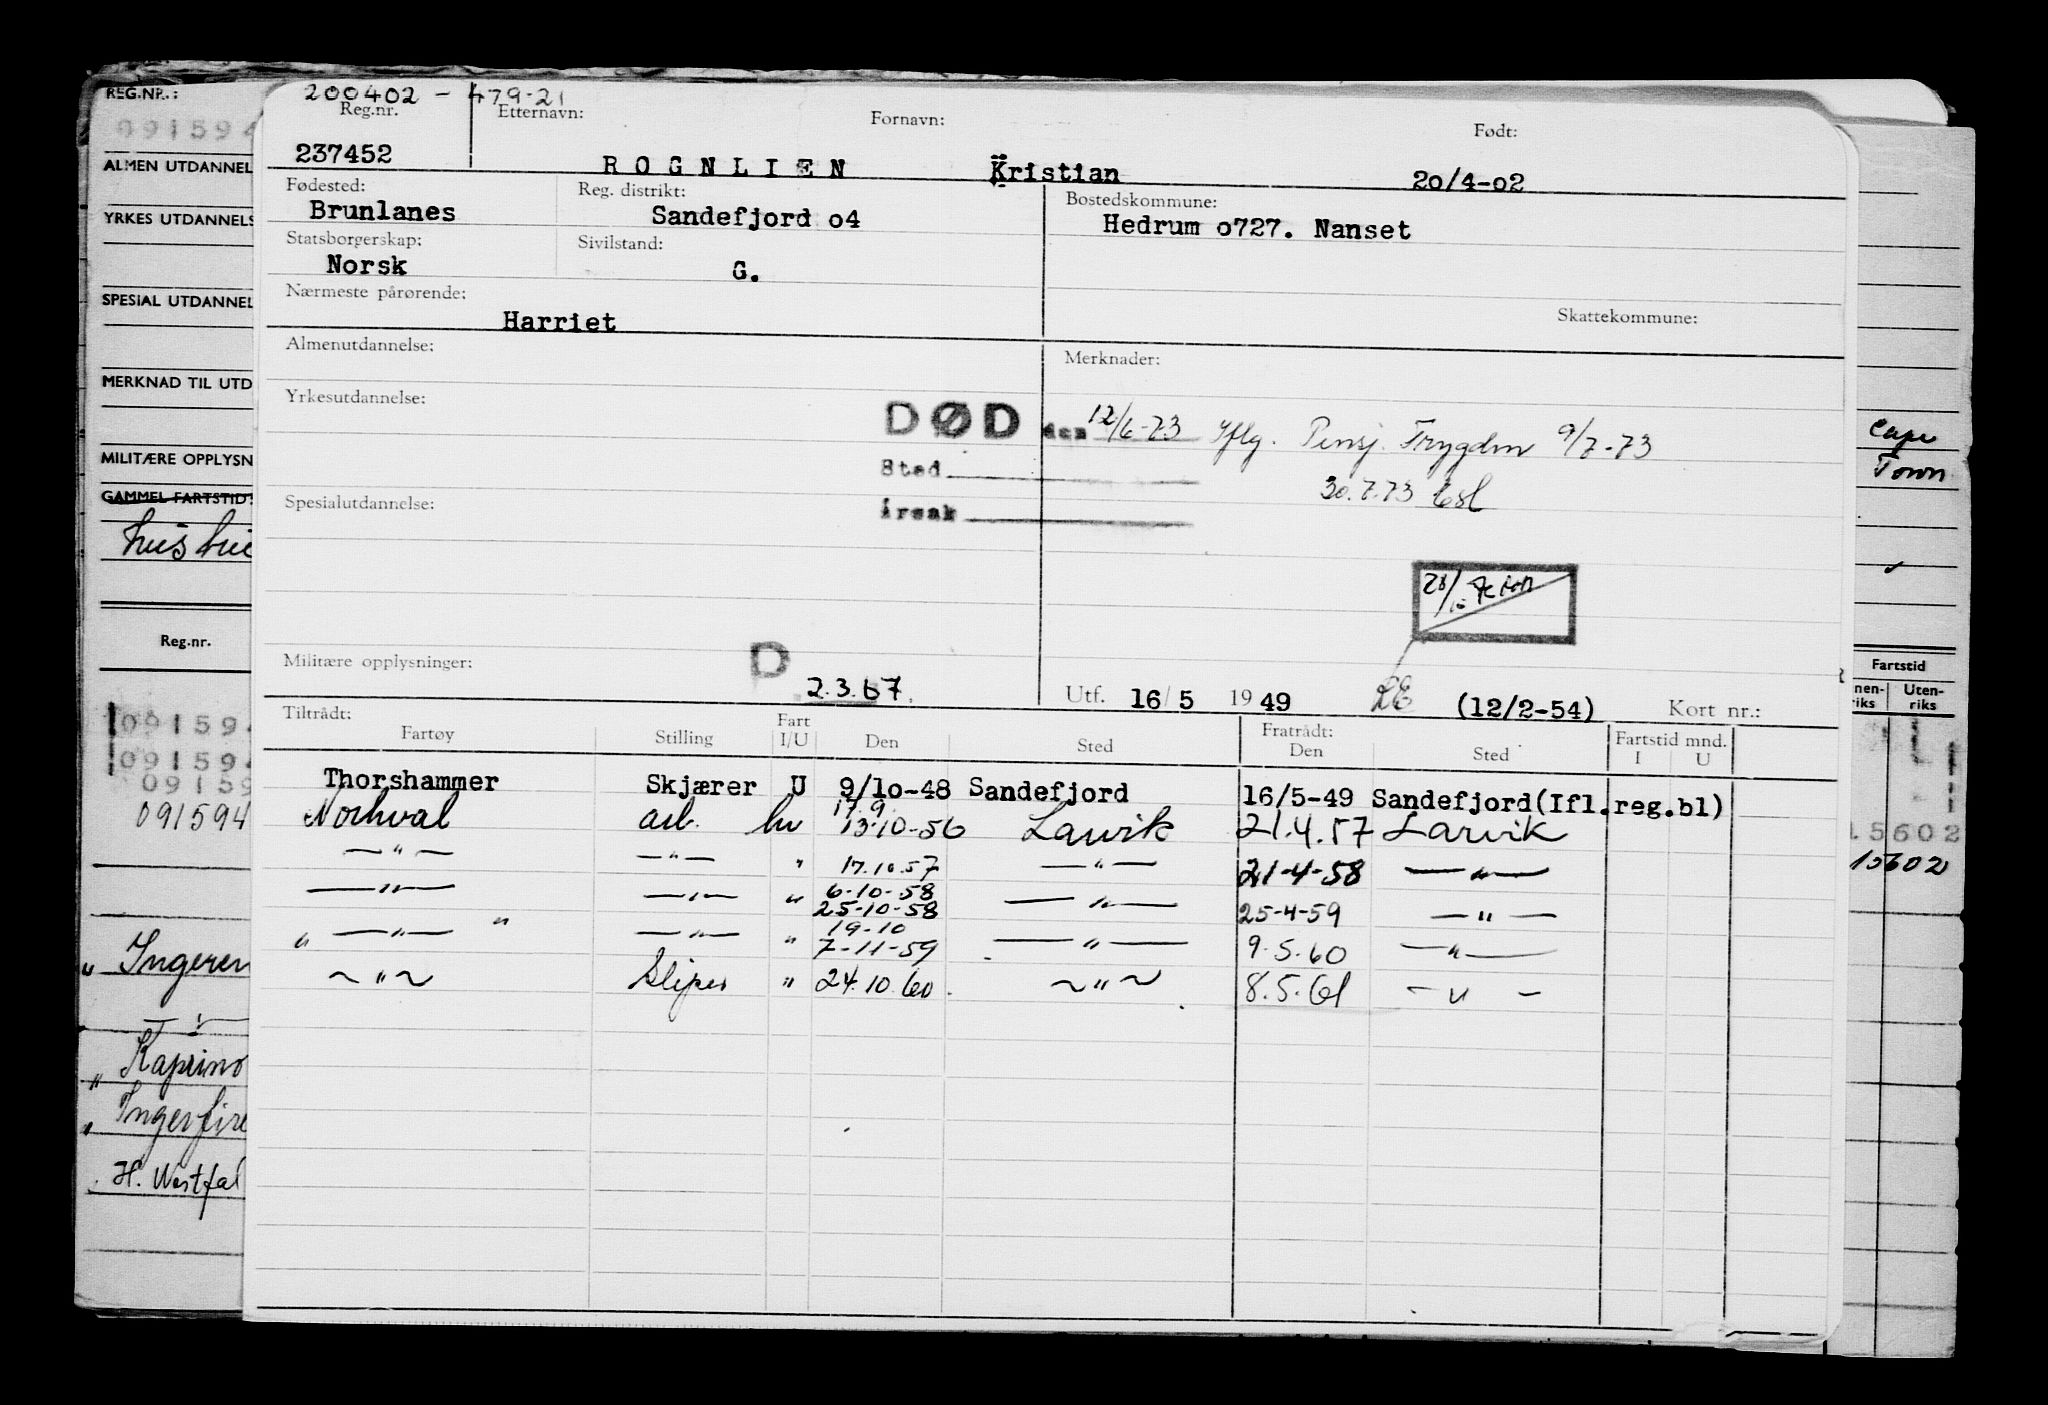 200402 - 479-21
Reg.nr. Etternavn: Fornavn: Født:
237452 ROGNLIEN Kristian 20/4-02
Fødested: Reg. distrikt: Bostedskommune:
Brunlanes Sandefjord o4 Hedrum o727. Nanset
Statsborgerskap: Sivilstand:
Norsk G.
Nærmeste pårørende: Skattekommune:
Harriet
Almenutdannelse: Merknader:
Yrkesutdannelse:
DØD den 12/6-73 Iflg. Pensj. Trygden 9/7-73
Sted
30.7.73
Spesialutdannelse: Årsak
Militære opplysninger: D 2.3.67. Utf. 16/5 1949 (12/2-54) Kort nr.:
Tiltrådt: Fart Fratrådt: Fartstid mnd.
Fartøy Stilling I/U Den Sted Den Sted I U
Thorshammer Skjærer U 9/10-48 Sandefjord 16/5-49 Sandefjord(Ifl.reg.bl)
17.9
Norhval arb. hv 13.10-56 Larvik 21.4.57 Larvik
— " — — " — " 17.10.57 — " — 21-4-58 — " —
6-10-58
— " — — " — " 25-10-58 — " — 25-4-59 — " —
19-10
" — " — " — " — " 7-11-59 — " — 9.5.60 — " —
~ " ~ Sliper " 24.10.60 ~ " ~ 8.5.61 — " —
REG.NR.:
091594
ALMEN UTDANNEL
YRKES UTDANNELS
SPESIAL UTDANNEL
MERKNAD TIL UTD
MILITÆRE OPPLYSN
GAMMEL FARTSTID
Reg.nr.
091594
091594
09159
091594
" Ingeren
Kaprino
" Ingerfire
H. Westfal
Cape
Town
Fartstid
nen- Uten-
riks riks
5602
15602